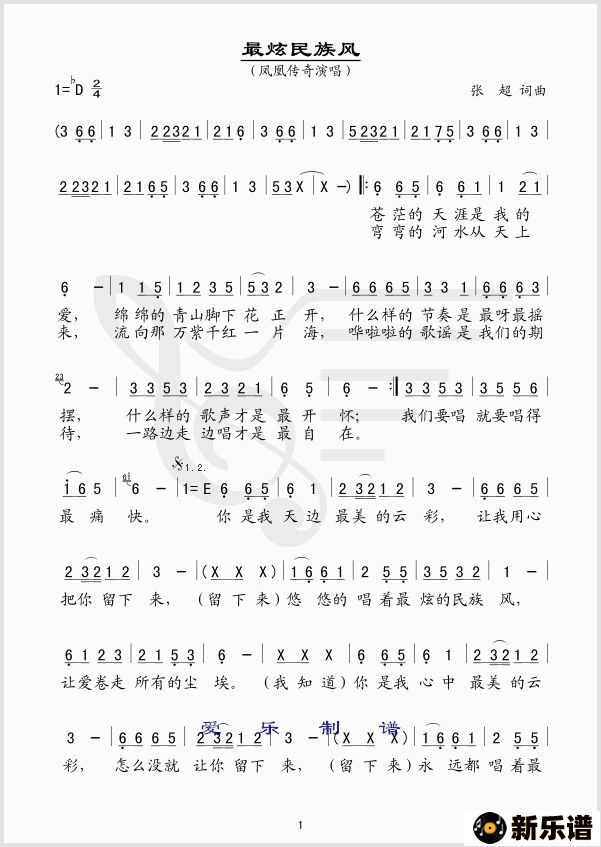 最炫民族风
（凤凰传奇演唱）
1=♭D 2/4 张 超 词曲
(3 6 6 | 1 3 | 2 2321 | 2 1 6 | 3 6 6 | 1 3 | 5 2321 | 2 1 7 5 | 3 6 6 | 1 3 |
2 2321 | 2 1 6 5 | 3 6 6 | 1 3 | 5 3 X | X —) ‖: 6 6 5 | 6 6 1 | 1 2 1 |
苍 茫的 天 涯是 我 的
弯 弯的 河 水从 天 上
6 — | 1 1 5 | 1 2 3 5 | 5 3 2 | 3 — | 3 5 6 5 | 3 3 1 | 6 6 6 3 |
爱， 绵绵的 青山脚下 花 正 开， 什么样的 节奏是 最呀最摇
来， 流向那 万紫千红 一 片 海， 哗啦啦的 歌谣是 我们的期
23 2 — | 3 3 5 3 | 2 3 2 3 | 6 5 | 6 — :‖ 3 3 5 3 | 3 5 5 6 |
摆， 什么样的 歌声才是 最 开 怀； 我们要唱 就要唱得
待， 一路边走 边唱才是 最 自 在。
1.2.
1 6 5 | 6 — | 1=E 6 6 5 | 6 1 | 2 3212 | 3 — | 6 6 6 5 |
最 痛 快。 你 是我 天 边 最美的云 彩， 让我用心
2 3212 | 3 — | (X X X) | 1 6 6 1 | 5 6 5 3 | 5 5 6 5 | 1 — |
把你 留下 来， （留 下 来）悠 悠的 唱着最 炫的民族 风，
6 1 2 3 | 2 1 5 3 | 6 — | X X X | 6 6 5 | 6 5 | 2 3212 |
让爱卷走 所有的尘 埃。（我 知 道）你 是我 心 中 最美 的云
3 — | 6 6 6 5 | 2 3212 | 3 — | (X X X) | 1 6 6 1 | 5 6 5 3 |
彩， 怎么没就 让你 留下 来， （留 下 来）永 远都 唱着最
爱 乐 制 谱
1
新乐谱